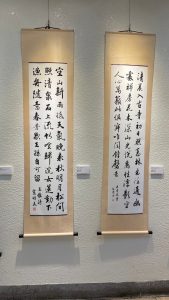 清晨入古寺初日照高林曲徑通幽
處禪房花木深山光悅鳥性潭影空
人心萬籟此俱寂惟聞鐘磬音
空山新雨後天氣晚來秋明月松間
照清泉石上流竹喧歸浣女蓮動下
漁舟隨意春芳歇王孫自可留